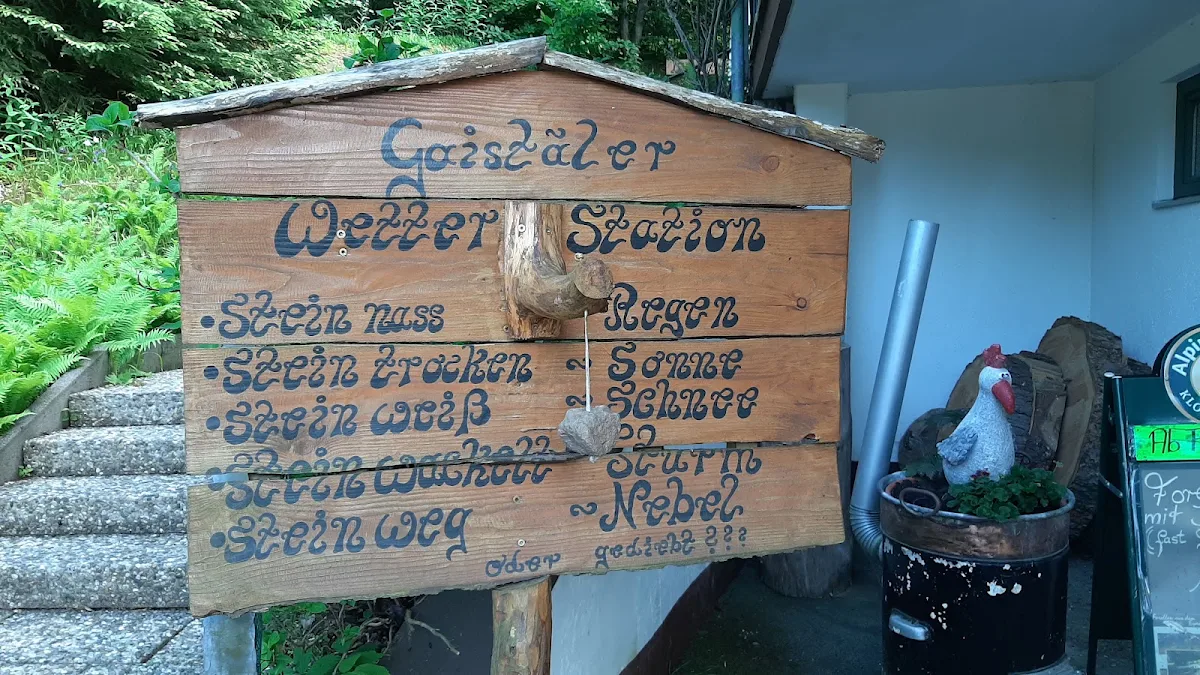 Gaistäler
Wetter Station
• Stein nass ~ Regen
• Stein trocken ~ Sonne
• Stein weiß ~ Schnee
• Stein wackelt ~ Sturm
• Stein weg ~ Nebel
oder gediebt ???
Alpi
KLO
Ab
For
mit
(fast